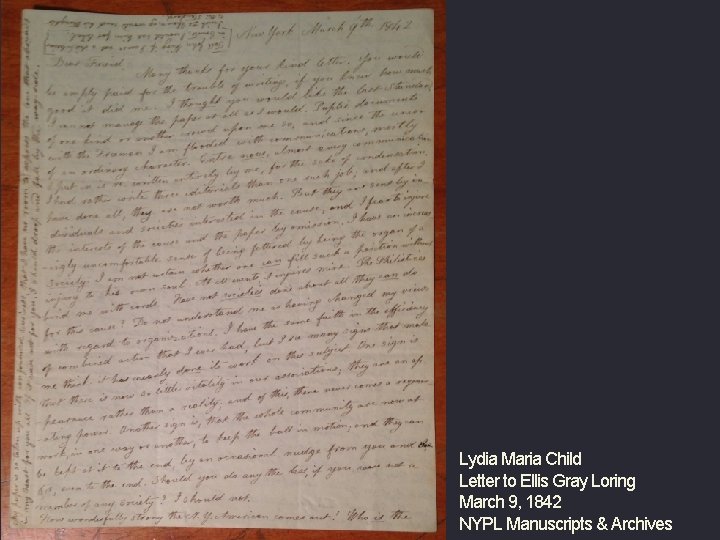 New York March 9th, 1842
Dear Friend,
Many thanks for your kind letter. You would
be amply paid for the trouble of writing, if you knew how much
good it did me. I thought you would like the last Standard.
I can not manage the paper at all as I would. Public documents
of one kind or another crowd upon me so, and since the union
with the Freeman I am flooded with communications, mostly
of an ordinary character. Entre nous, almost every communication
I put in is re-written entirely by me, for the sake of condensation.
I had rather write three editorials than one such job, and after I
have done all, they are not worth much. But they are sent by in-
dividuals and societies interested in the cause, and I fear to injure
the interests of the cause and the paper by omission. I have an increas-
ingly uncomfortable sense of being fettered by being the organ of a
Society. I am not certain whether one can fill such a position without
injury to his own soul. At all events I injures mine. The Philistines
bind me with cords. Have not societies done about all they can do
for this cause? Do not understand me as having changed my views
with regard to organizations. I have the same faith in the efficiency
of combined action that I ever had, but I see many signs that make
me think it has nearly done its work on this subject. One sign is
that there is now so little vitality in our associations; they are an ap-
pearance rather than a reality; and of this, there never comes a regener-
ating power. Another sign is, that the whole community are now at
work, in one way or another, to keep the ball in motion, and they can
be kept at it to the end, by an occasional nudge from you and
even to the end. Should you do any the less if you were not a
member of any society? I should not.
How wonderfully strong the N. Y. American comes out! Who is the
Lydia Maria Child
Letter to Ellis Gray Loring
March 9, 1842
NYPL Manuscripts & Archives